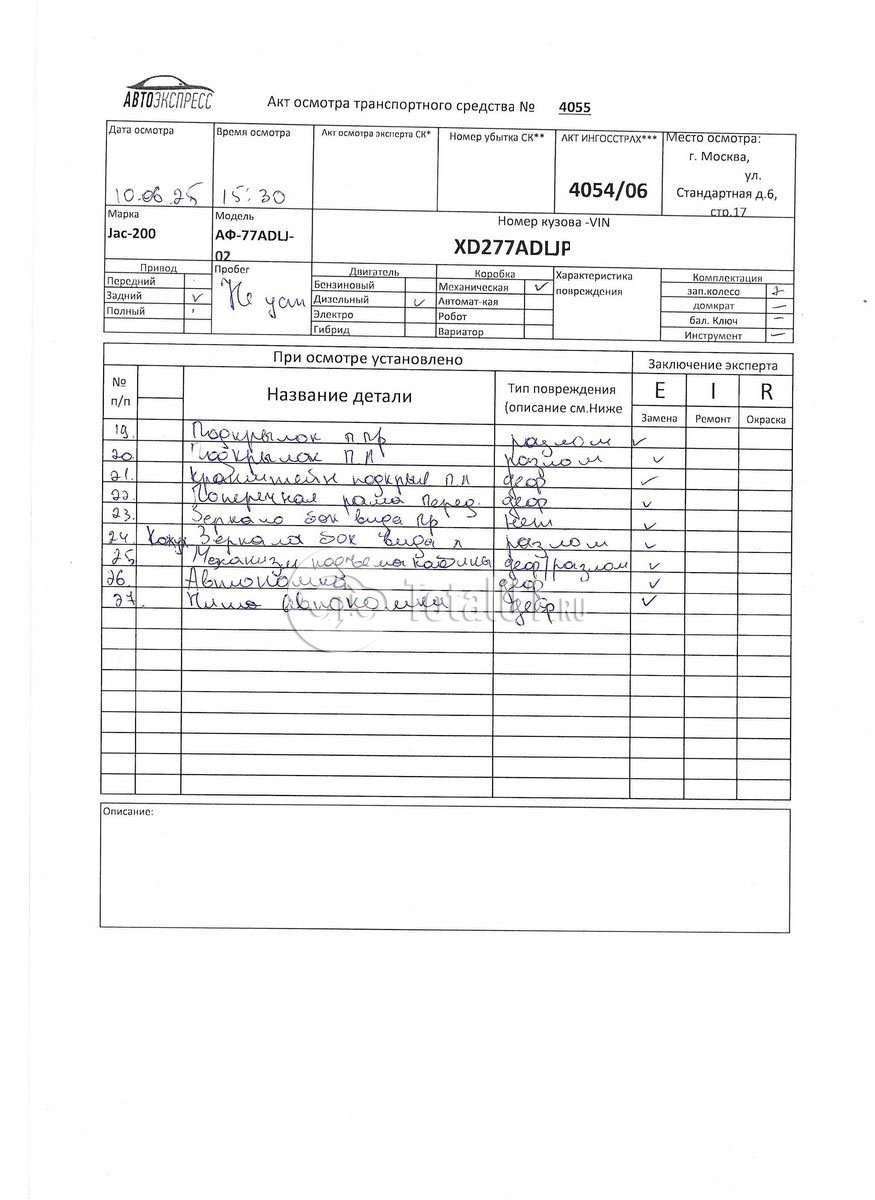 АВТОЭКСПРЕСС
Акт осмотра транспортного средства № 4055
Дата осмотра
10.06.25
Время осмотра
15:30
Акт осмотра эксперта СК*
Номер убытка СК**
АКТ ИНГОССТРАХ***
4054/06
Место осмотра:
г. Москва,
ул.
Стандартная д.6,
стр.17
Марка
Jac-200
Модель
АФ-77ADLJ-
02
Номер кузова -VIN
XD277ADLJP
Привод
Передний
Задний ✓
Полный
Пробег
Не уст
Двигатель
Бензиновый
Дизельный ✓
Электро
Гибрид
Коробка
Механическая ✓
Автомат-кая
Робот
Вариатор
Характеристика
повреждения
Комплектация
зап.колесо
домкрат —
бал. Ключ —
Инструмент —
При осмотре установлено
Заключение эксперта
№
п/п
Название детали
Тип повреждения
(описание см.Ниже
E I R
Замена Ремонт Окраска
19. Подкрылок п пр разлом ✓
20 Подкрылок п л разлом ✓
21. Кронштейн подкрыл п л деф ✓
22. Поперечная рама перед. деф ✓
23. Зеркало бок вида пр нет ✓
24 Кожух Зеркала бок вида л разлом ✓
25 Механизм подъема кабины деф/разлом ✓
26 Автономка деф ✓
27. автономки деф ✓
Total01.RU
Описание: